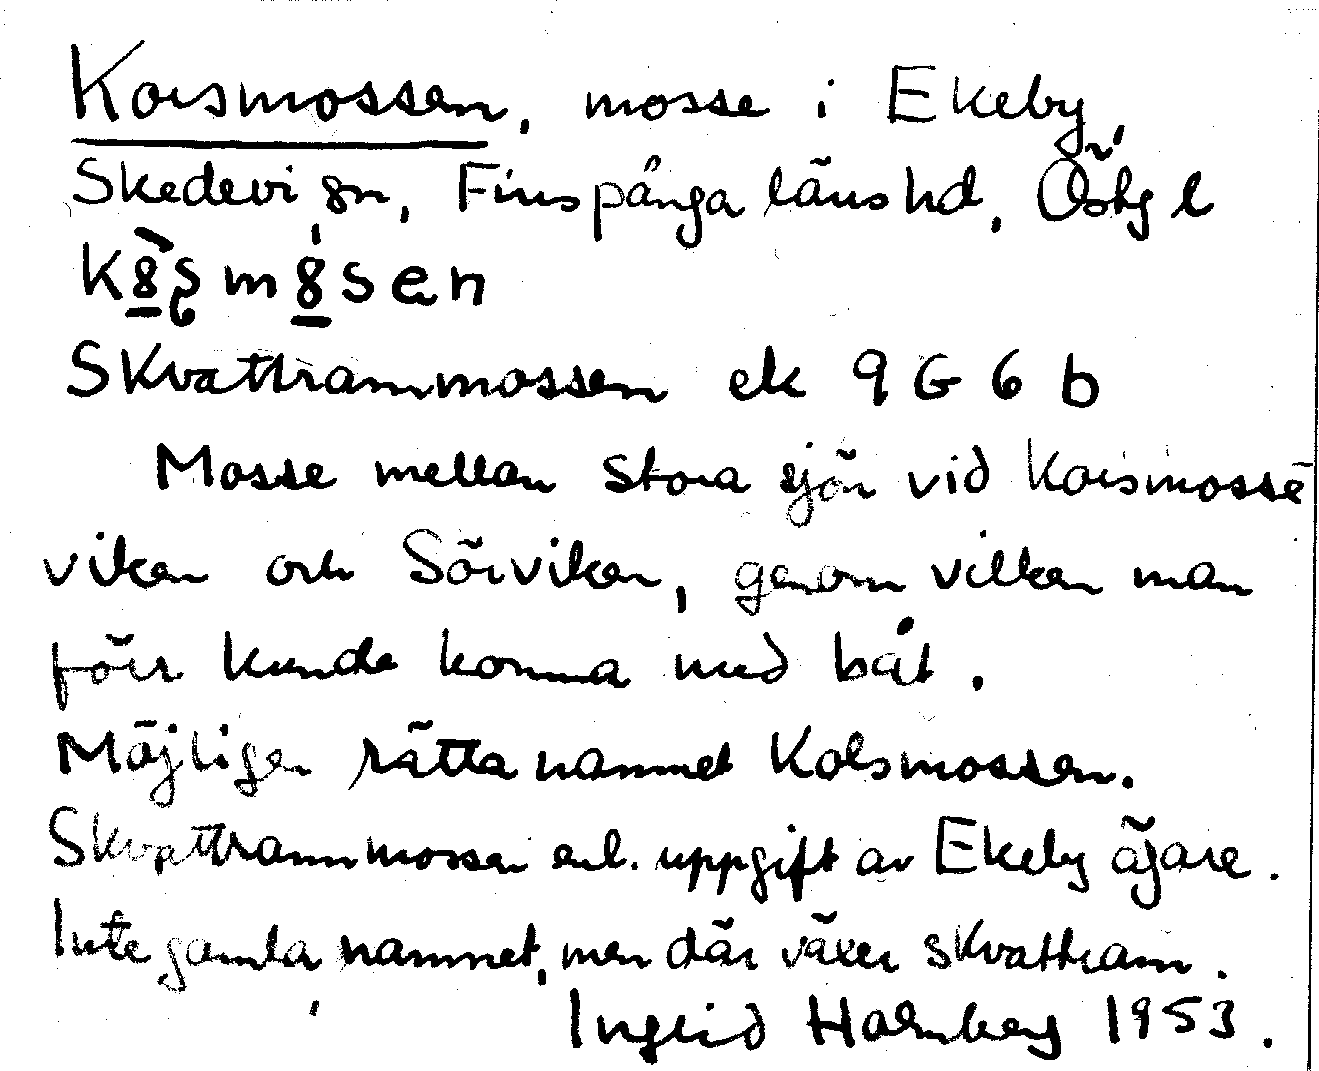 Korsmossen, mosse i Ekeby,
Skedevi sn, Finspånga läns hd, Östg l
Skvattrammossen ek 9 G 6 b
Mosse mellan Stora sjön vid Korsmosse
viken och Sörviken, genom vilken man
förr kunde komma med båt.
Möjligen rätta namnet Kolsmossen.
Skvattrammossen enl. uppgift av Ekeby ägare.
Inte gamla namnet, men där växer skvattram.
Ingrid Holmberg 1953.